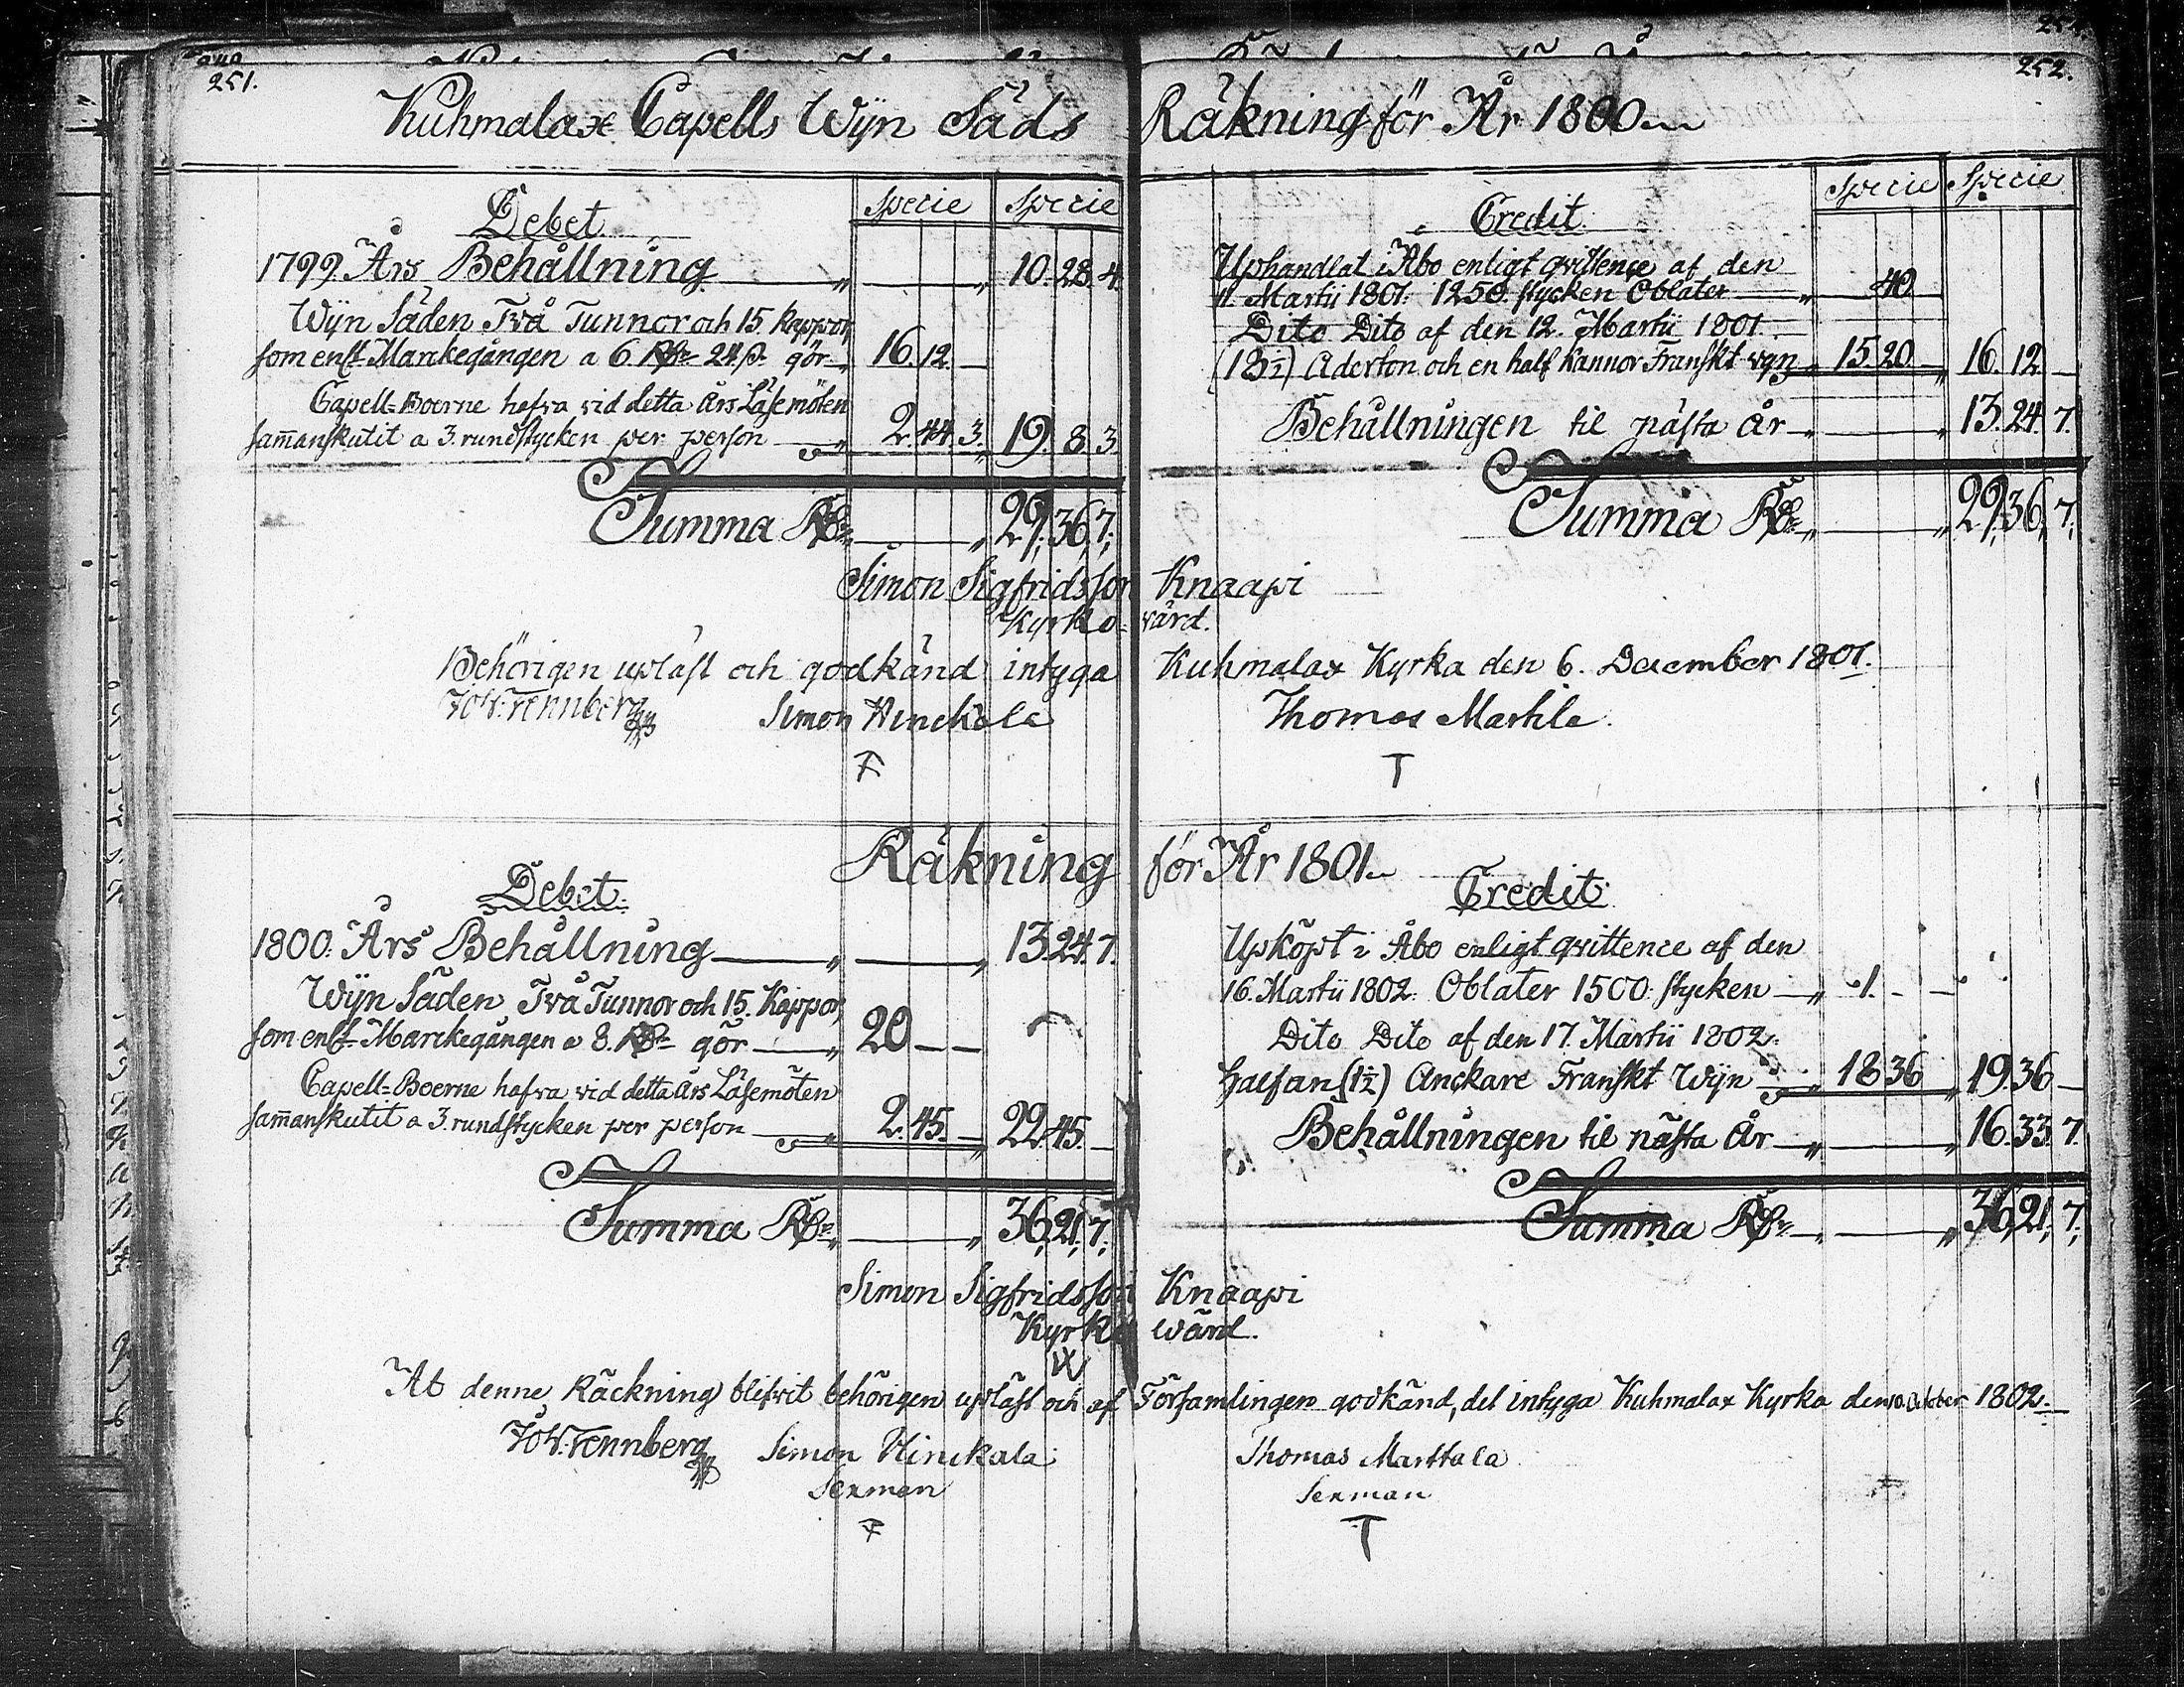 251.
252.
Kuhmalax Capells Wijn Säds Räkning för År 1800
Debet
Specie Specie
1799. Års Behållning 10. 28. 4.
Wijn Säden Två Tunnor och 15. Kappor,
som enl:t Marckegången a 6. Rd:r 24 ß. gör 16. 12. —
Capell=Boerne hafva vid detta års Läsemöten
sam̄anskutit a 3. rundstycken per person 2. 44. 3. 19. 8. 3
Summa Rd:r 29,, 36,, 7,,
Credit
Specie Specie
Uphandlat i Åbo enligt qvittence af den
11 Martii 1801: 1250. stycken Oblater 40
Dito Dito af den 12. Martii 1801
(18½) Aderton och en half Kannor Franskt vijn 15. 20. — 16. 12 —
Behållningen til nästa år 13. 24. 7.
Summa Rd:r 29,, 36,, 7,,
Simon Sigfridsson Knaapi
Kyrko=värd.
Behörigen upläst och godkänd intyga Kuhmalax Kyrka den 6. December 1801.
Joh: Tennberg Simon Hinckala Thomas Marttila
T
Räkning för År 1801
Debet
1800. Års Behållning 13. 24. 7.
Wijn Säden Två Tunnor och 15. Kappor,
som enl:t Marckegången a 8. Rd:r gör 20 — —
Capell=Boerne hafva vid detta års Läsemöten
sam̄anskutit a 3. rundstycken per person 2. 45. — 22 45. —
Summa Rd:r 36,, 21,, 7,,
Credit
Upköpt i Åbo enligt qvittence af den
16. Martii 1802. Oblater 1500 stycken 1. — —
Dito Dito af den 17. Martii 1802.
Halfan (1½) Anckare Franskt Wijn 18 36 19. 36 —
Behållningen til nästa År 16. 33. 7.
Summa Rd:r 36,, 21,, 7,,
Simon Sigfridsson Knaapi
Kyrko wärd.
At denne Räckning blifvit behörigen upläst och af Församlingen godkänd, det intyga Kuhmalax Kyrka den 10. October 1802.
Joh: Tennberg Simon Hinckala Thomas Marttala
Sexman Sexman
T